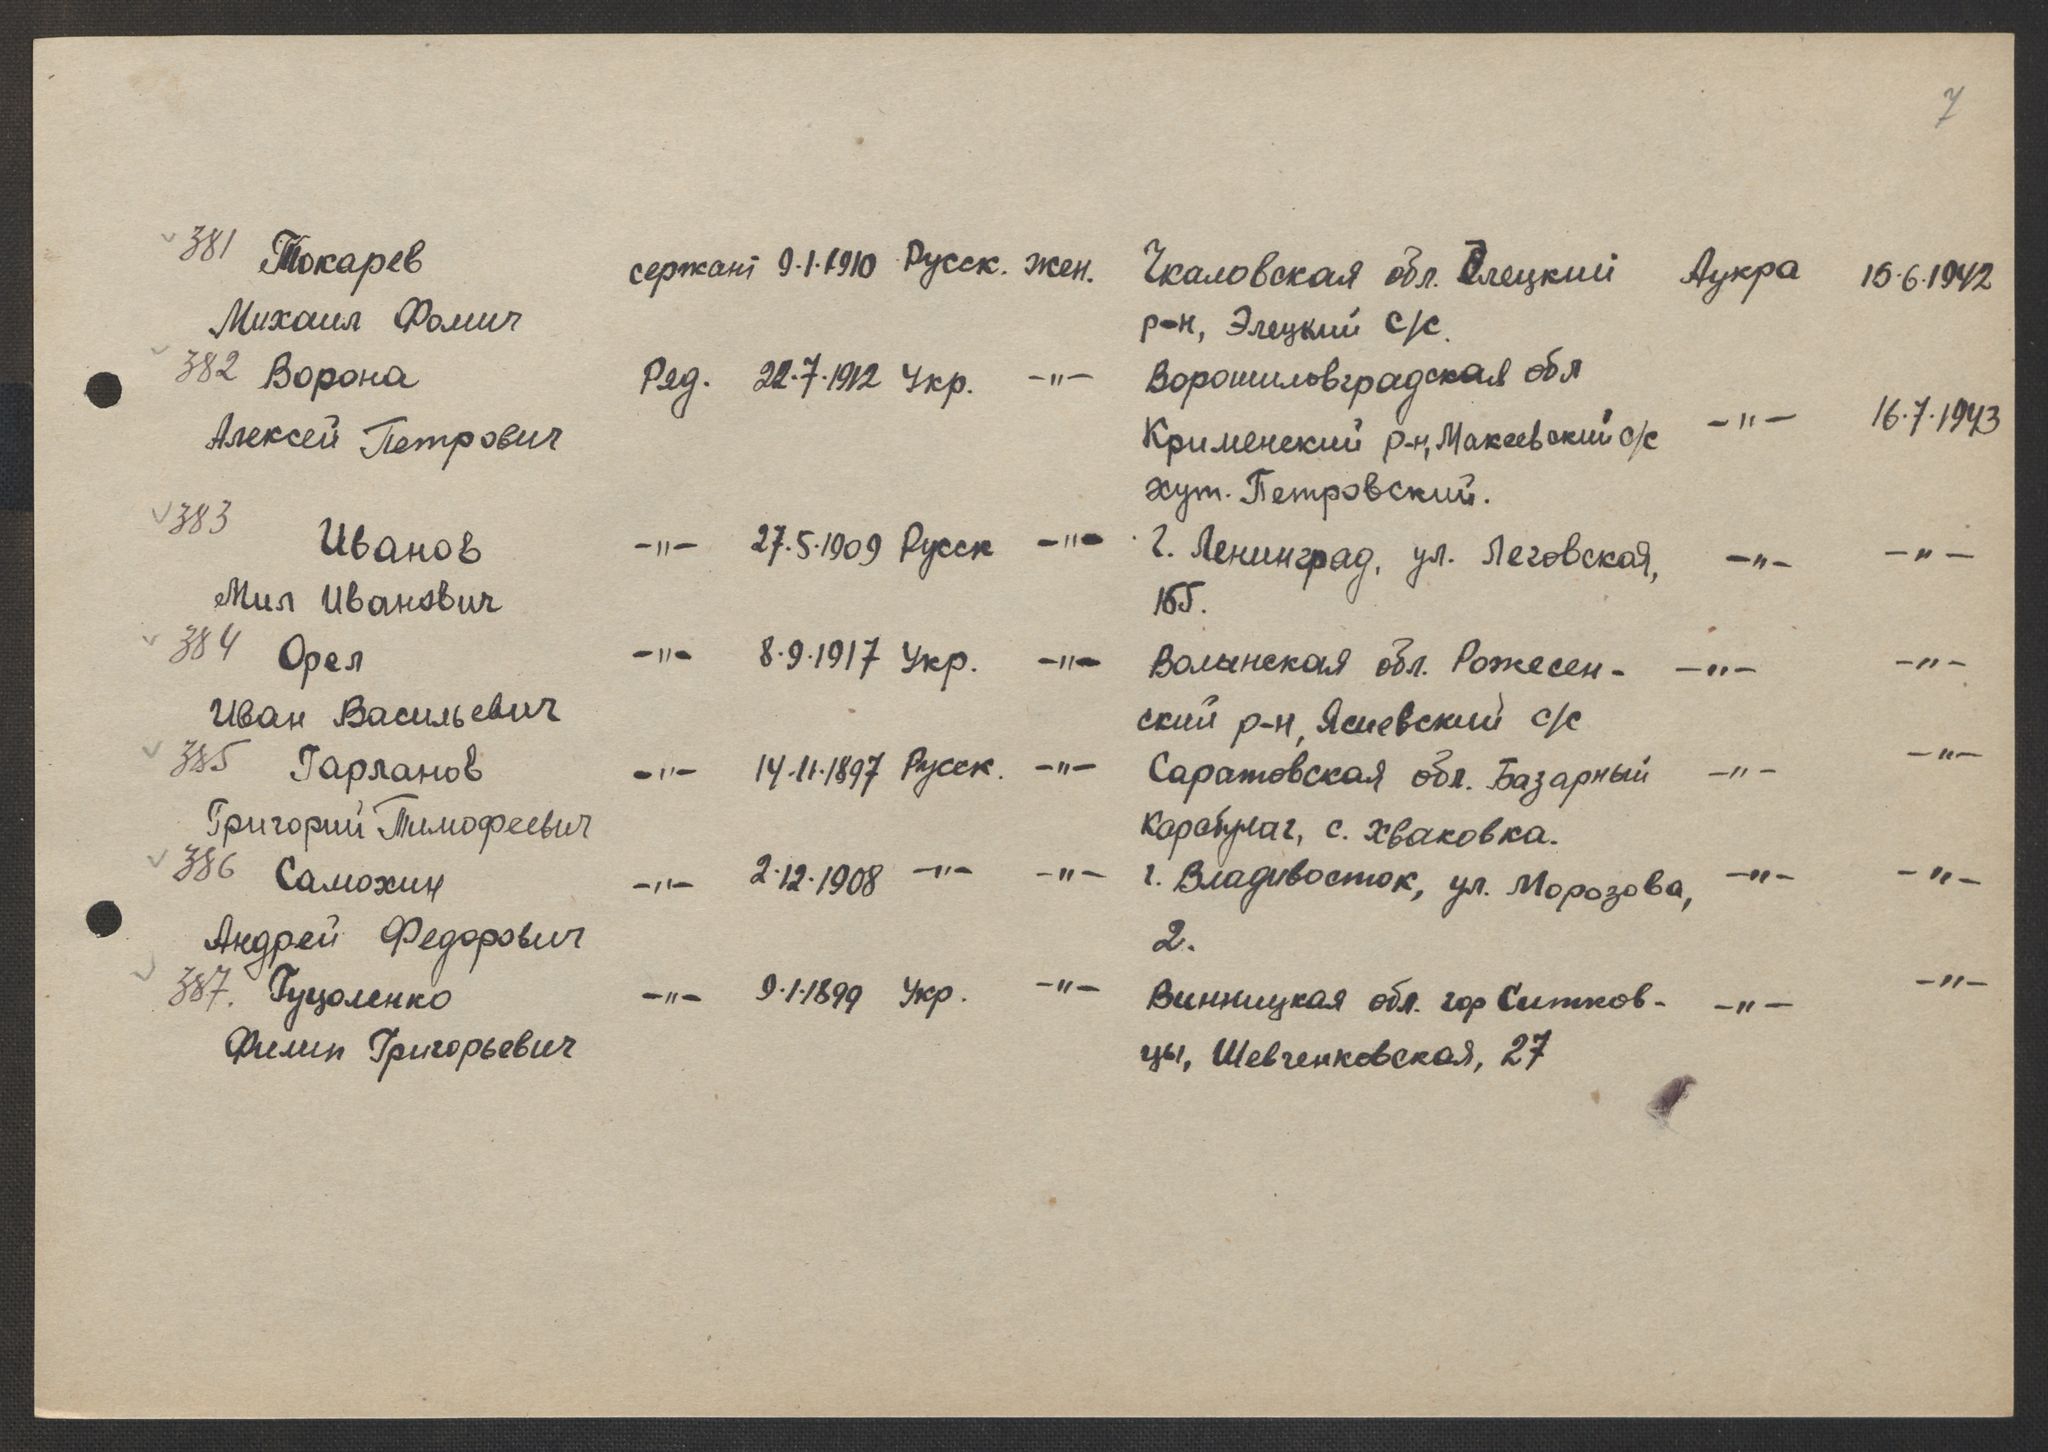 7
381 Токарев сержант 9.1.1910 Русск. жен. Чкаловская обл. Элецкий Аукра 15.6.1942
Михаил Фомич р-н, Элецкий с/с.
382 Ворона Ряд. 22.7.1912 Укр. -"- Ворошиловградская обл
Алексей Петрович Крименский р-н, Макеевский с/с -"- 16.7.1943
хут. Петровский.
383 Иванов -"- 27.5.1909 Русск -"- г. Ленинград, ул. Леговская, -"- -"-
Мил Иванович
384 Орел -"- 8.9.1917 Укр. -"- Волынская обл. Рожесен- -"- -"-
Иван Васильевич ский р-н, Ясиевский с/с
385 Гарланов -"- 14.11.1897 Русск. -"- Саратовская обл. Базарный -"- -"-
Григорий Тимофеевич Карабулаг, с. Хваковка.
386 Самохин -"- 2.12.1908 -"- -"- г. Владивосток, ул. Морозова, -"- -"-
Андрей Федорович 2.
387. Гуцоленко -"- 9.1.1899 Укр. -"- Винницкая обл. гор Ситков- -"- -"-
Филип Григорьевич цы, Шевченковская, 27